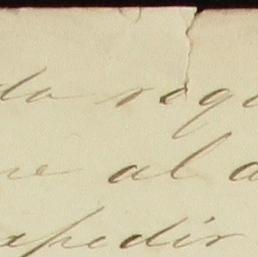 da regu
ne al a
xpedir